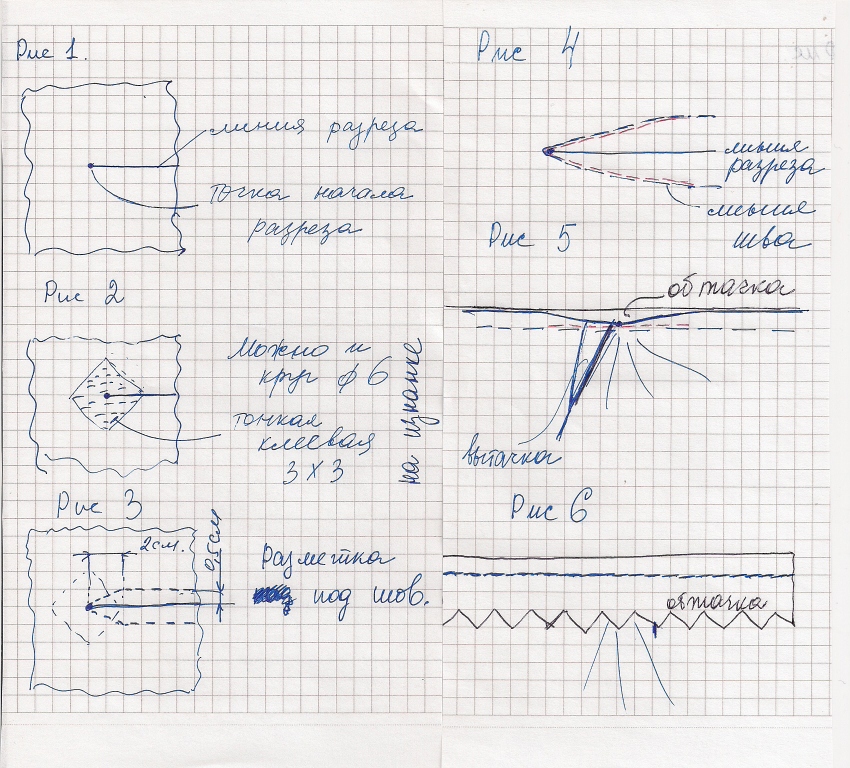 Рис 1.
линия разреза
точка начала
разреза
Рис 2
Можно и
круг ϕ 6
на изнанке
тонкая
клеевая
3 X 3
Рис 3
2 см.
0,5 см
Разметка
под шов.
Рис 4
линия
разреза
линия
шва
Рис 5
обтачка
вытачка
Рис 6
обтачка